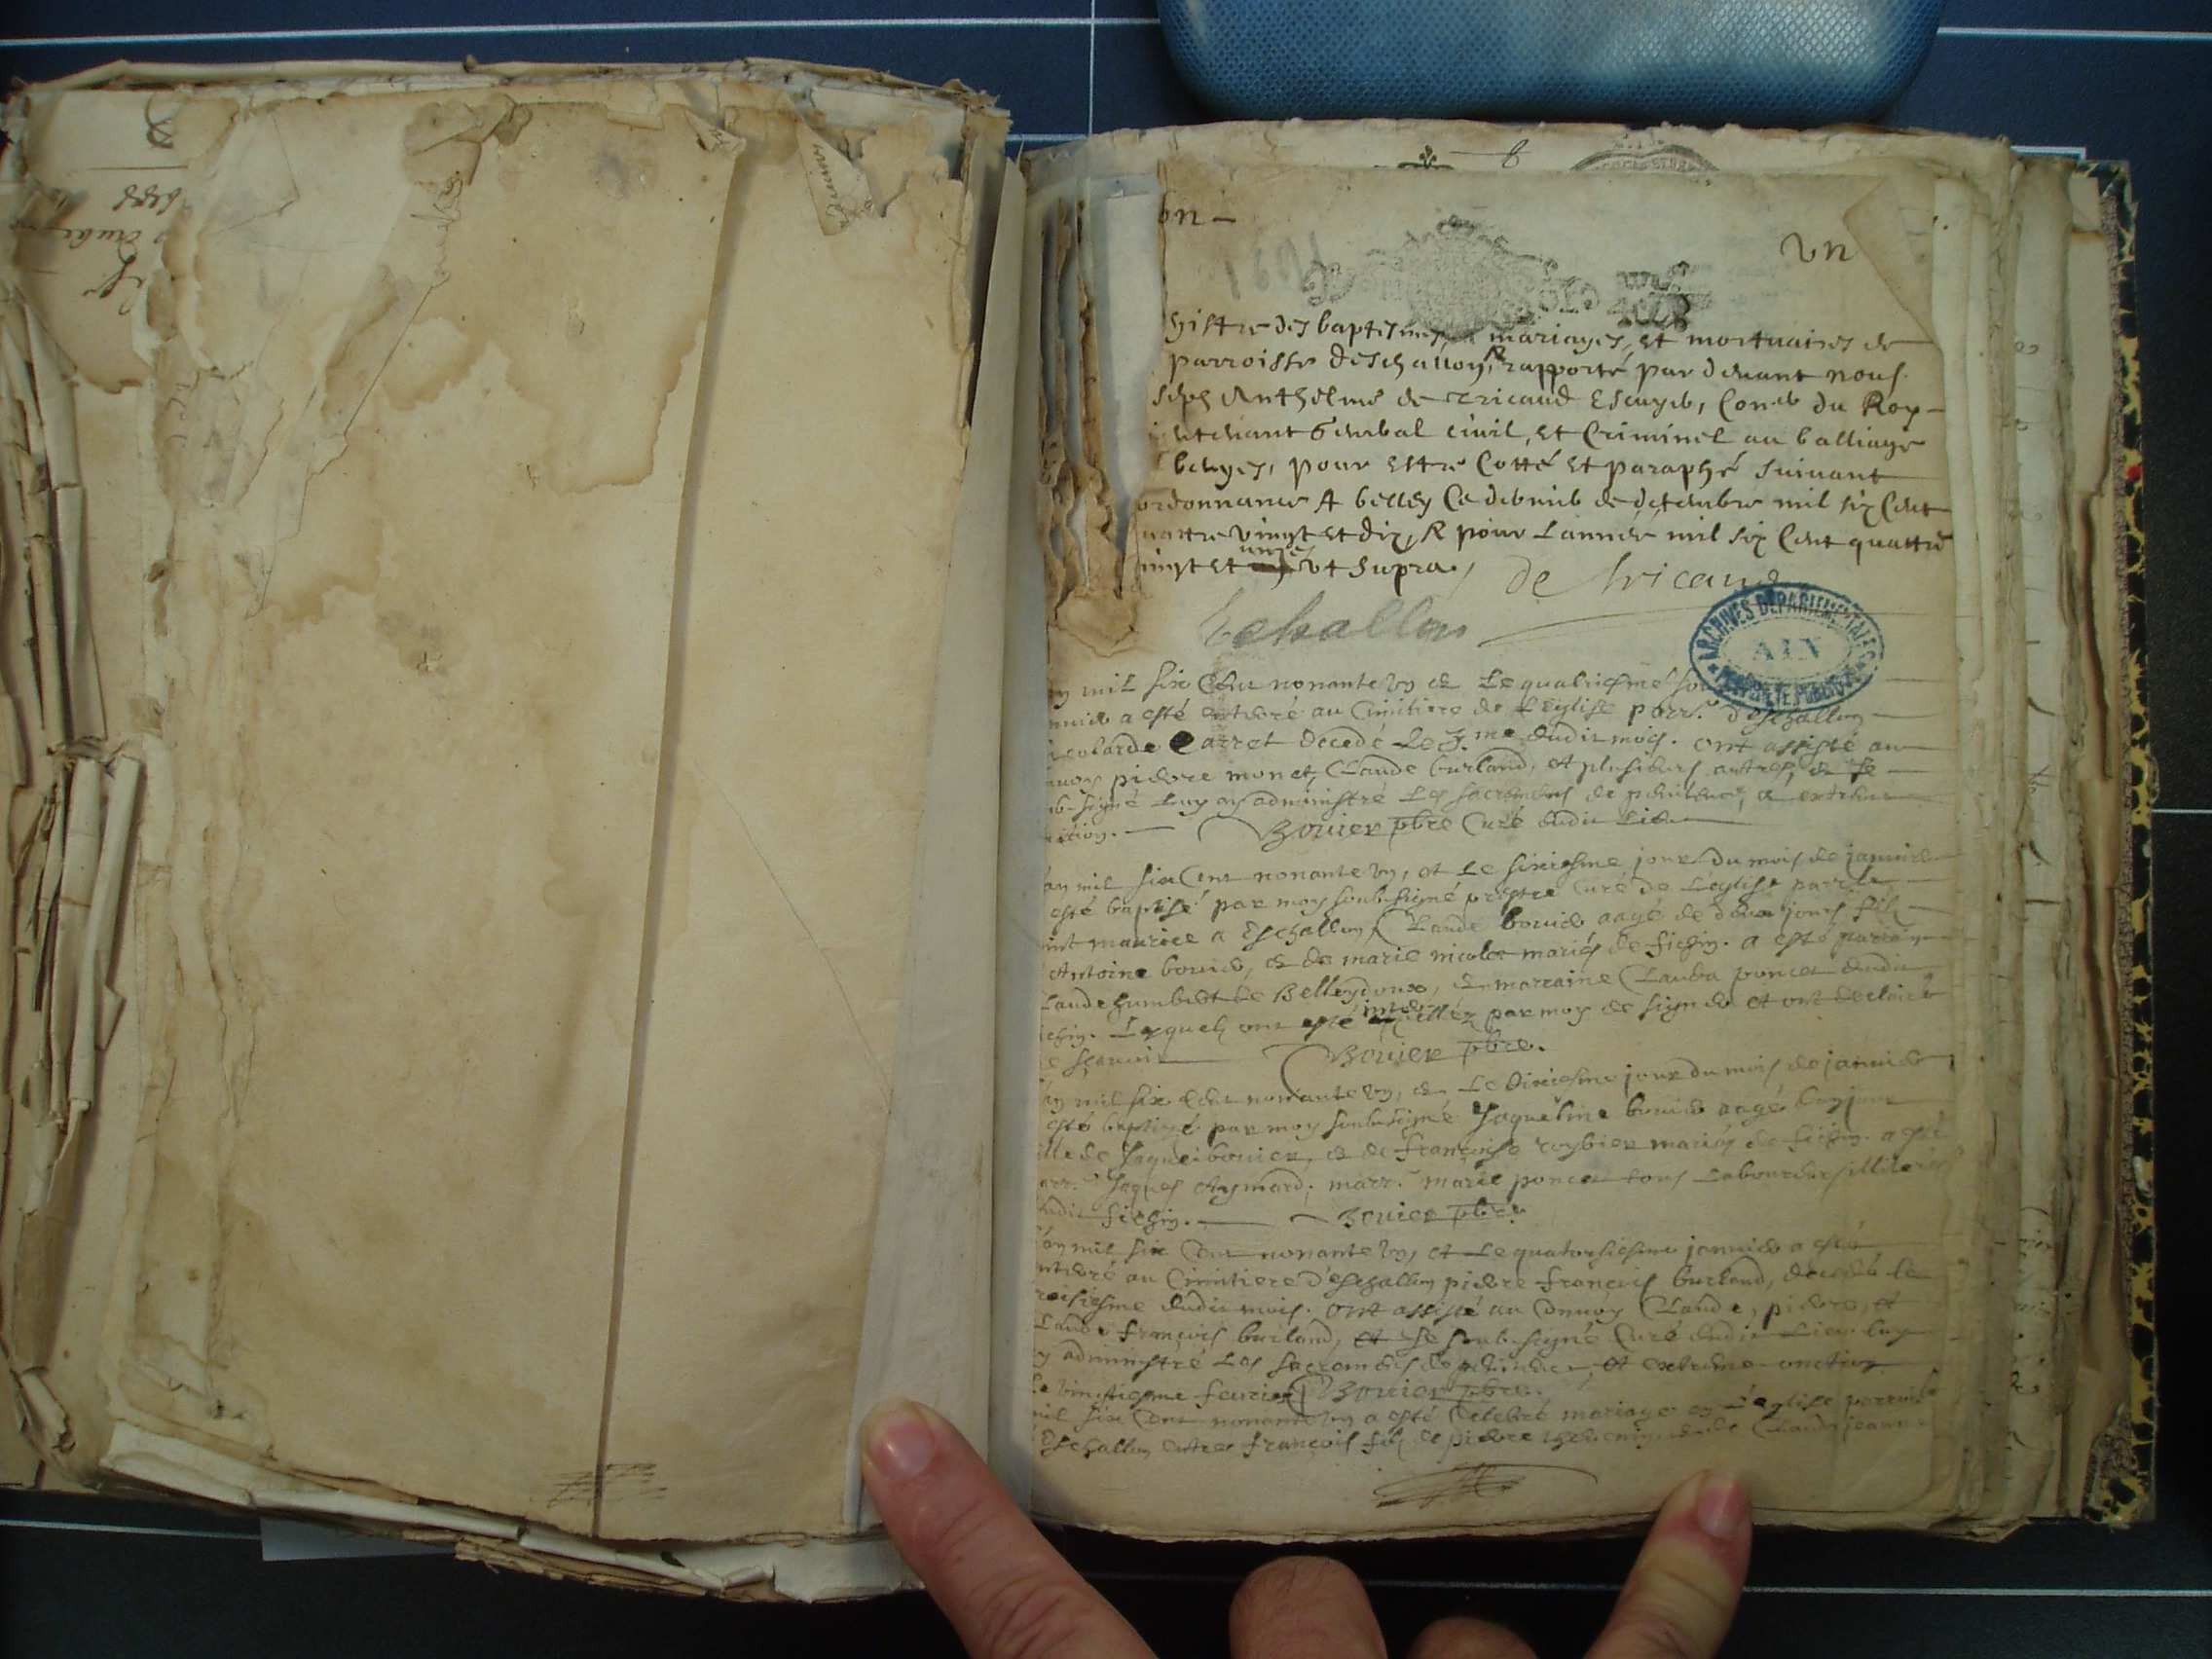 un
1691
gistre des baptesmes, mariages, et mortuaires de
parroisse deschallon, rapporté par devant nous
seph Anthelme de tricaud Escuyer, Coner du Roy
ieutenant General civil, et Criminel au balliage
beugey, pour estre Cotté et paraphé suivant
ordonnance A belley Ce dernier de decembre mil six Cent
uattre vingt et dix, & pour Lannée mil six Cent quattre
ingt et unze ut supra / de tricaud
Echallon
ARCHIVES DÉPARTEMENTALES
AIN
PROPRIÉTÉ PUBLIQUE
an mil six Cent nonante un et Le quatriesme
nvier a esté enterré au Cimitiere de L'Eglise parr. d'Eschallon
Carret decedé Le 3.me dudit mois. ont assisté au
nvoy pierre monet, Claude burland, et plusieurs autres, et Je
ub-signé Luy ay administré Les sacremens de penitence, et extreme
nction. Bouier pbre Curé dudit Lieu
an mil six Cent nonante un, et Le sixiesme jour du mois de janvier
esté baptisé par moy soubsigné prestre Curé de L'eglise parrle
int maurice a Eschallon, Claude bouier aagé de deux jours fils
Antoine bouier, et de marie nicolet mariés de siegin. a esté parrain
laude humbert de Belleydoux, et marraine Clauda poncet dudit
iegin. Lesquels ont esté inter pellez par moy de signer et ont declaré
e sçavoir Bouier pbre.
an mil six Cent nonante un, et Le dixiesme jour du mois de janvier
esté baptizé par moy soubsigné Jaqueline bouier aagé d'un jour
lle de Jaques bouier, et de françoise roybier mariés de siegin. a esté
arr. Jaques Aymard; marr. marie poncet tous Laboureurs illiterés
udit siegin. Bouier pbre.
an mil six Cent nonante un, et Le quatorsiesme janvier a esté
nterré au Cimitiere d'Eschallon pierre françois burland, decedé le
reisiesme dudit mois. ont assisté au Convoy Claude, pierre, et
laude françois burland, et Je soub-signé Curé dudit Lieu luy
y administré Les sacremens de penitence, et extreme-onction
Le vingtiesme fevrier Bouier pbre.
mil six Cent nonante un a esté Celebré mariage en L'eglise parroiss
Eschallon entre françois fils de pierre